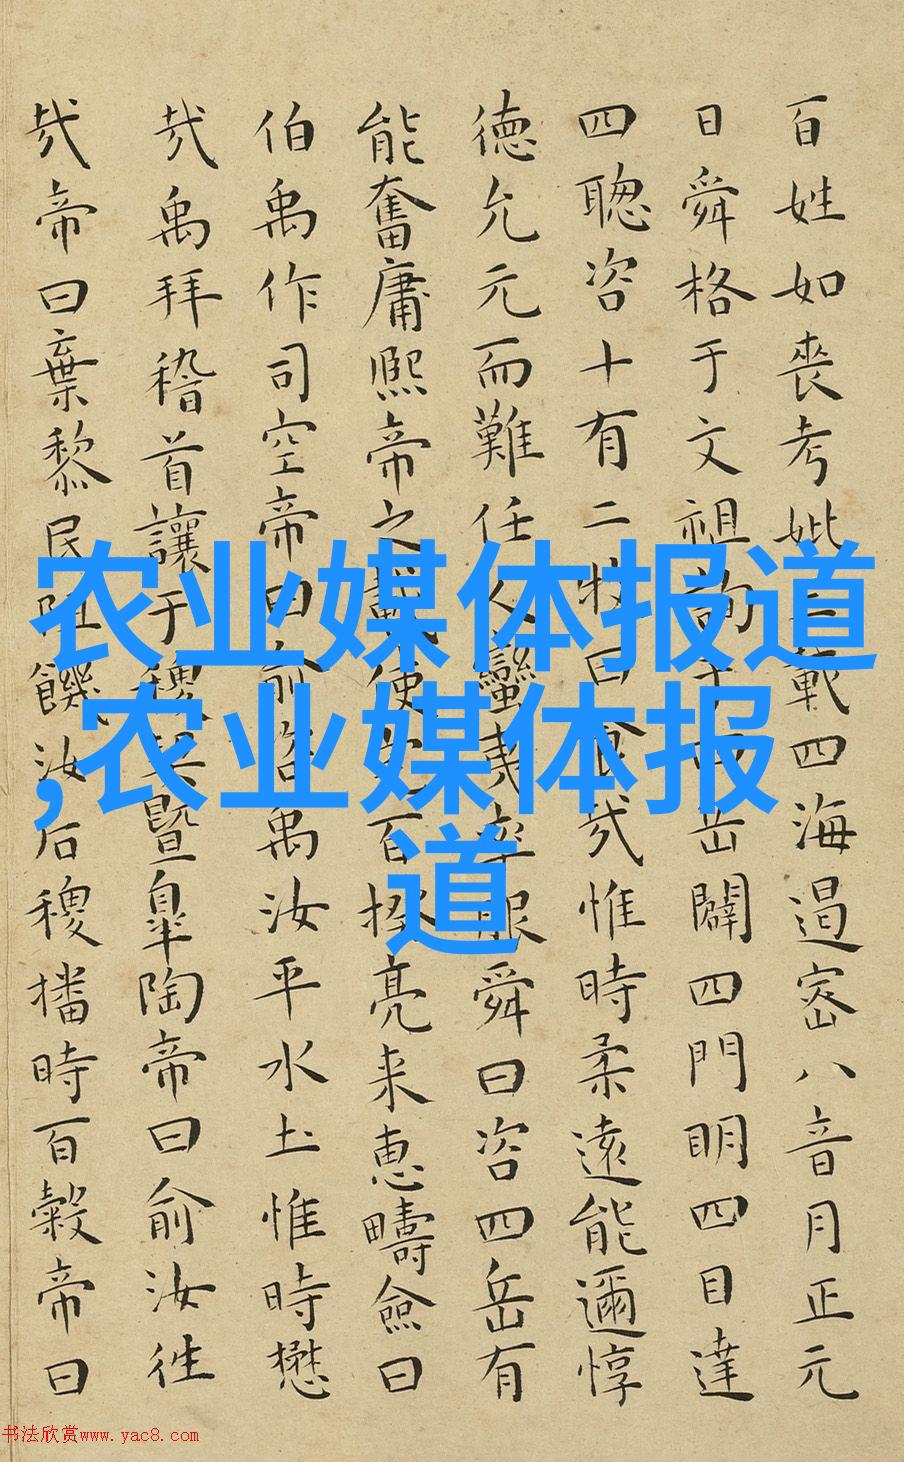 百姓如喪考妣載四海遏密八音月正元
日舜格于文祖于四岳闢四門明四目達
四聰咨十有二牧曰食哉惟時柔遠能邇惇
德允元而難任人蠻夷率服舜曰咨四岳有
能奮庸熙帝之使百揆亮来惠疇僉曰
伯禹作司空帝曰俞咨禹汝平水土惟時懋
哉禹拜稽首讓于稷暨皐陶帝曰俞汝徃
哉帝曰棄黎民阻饑汝后稷播時百穀帝曰
农业媒体报道
,农业媒体报
道
书法欣赏www.yac8.com